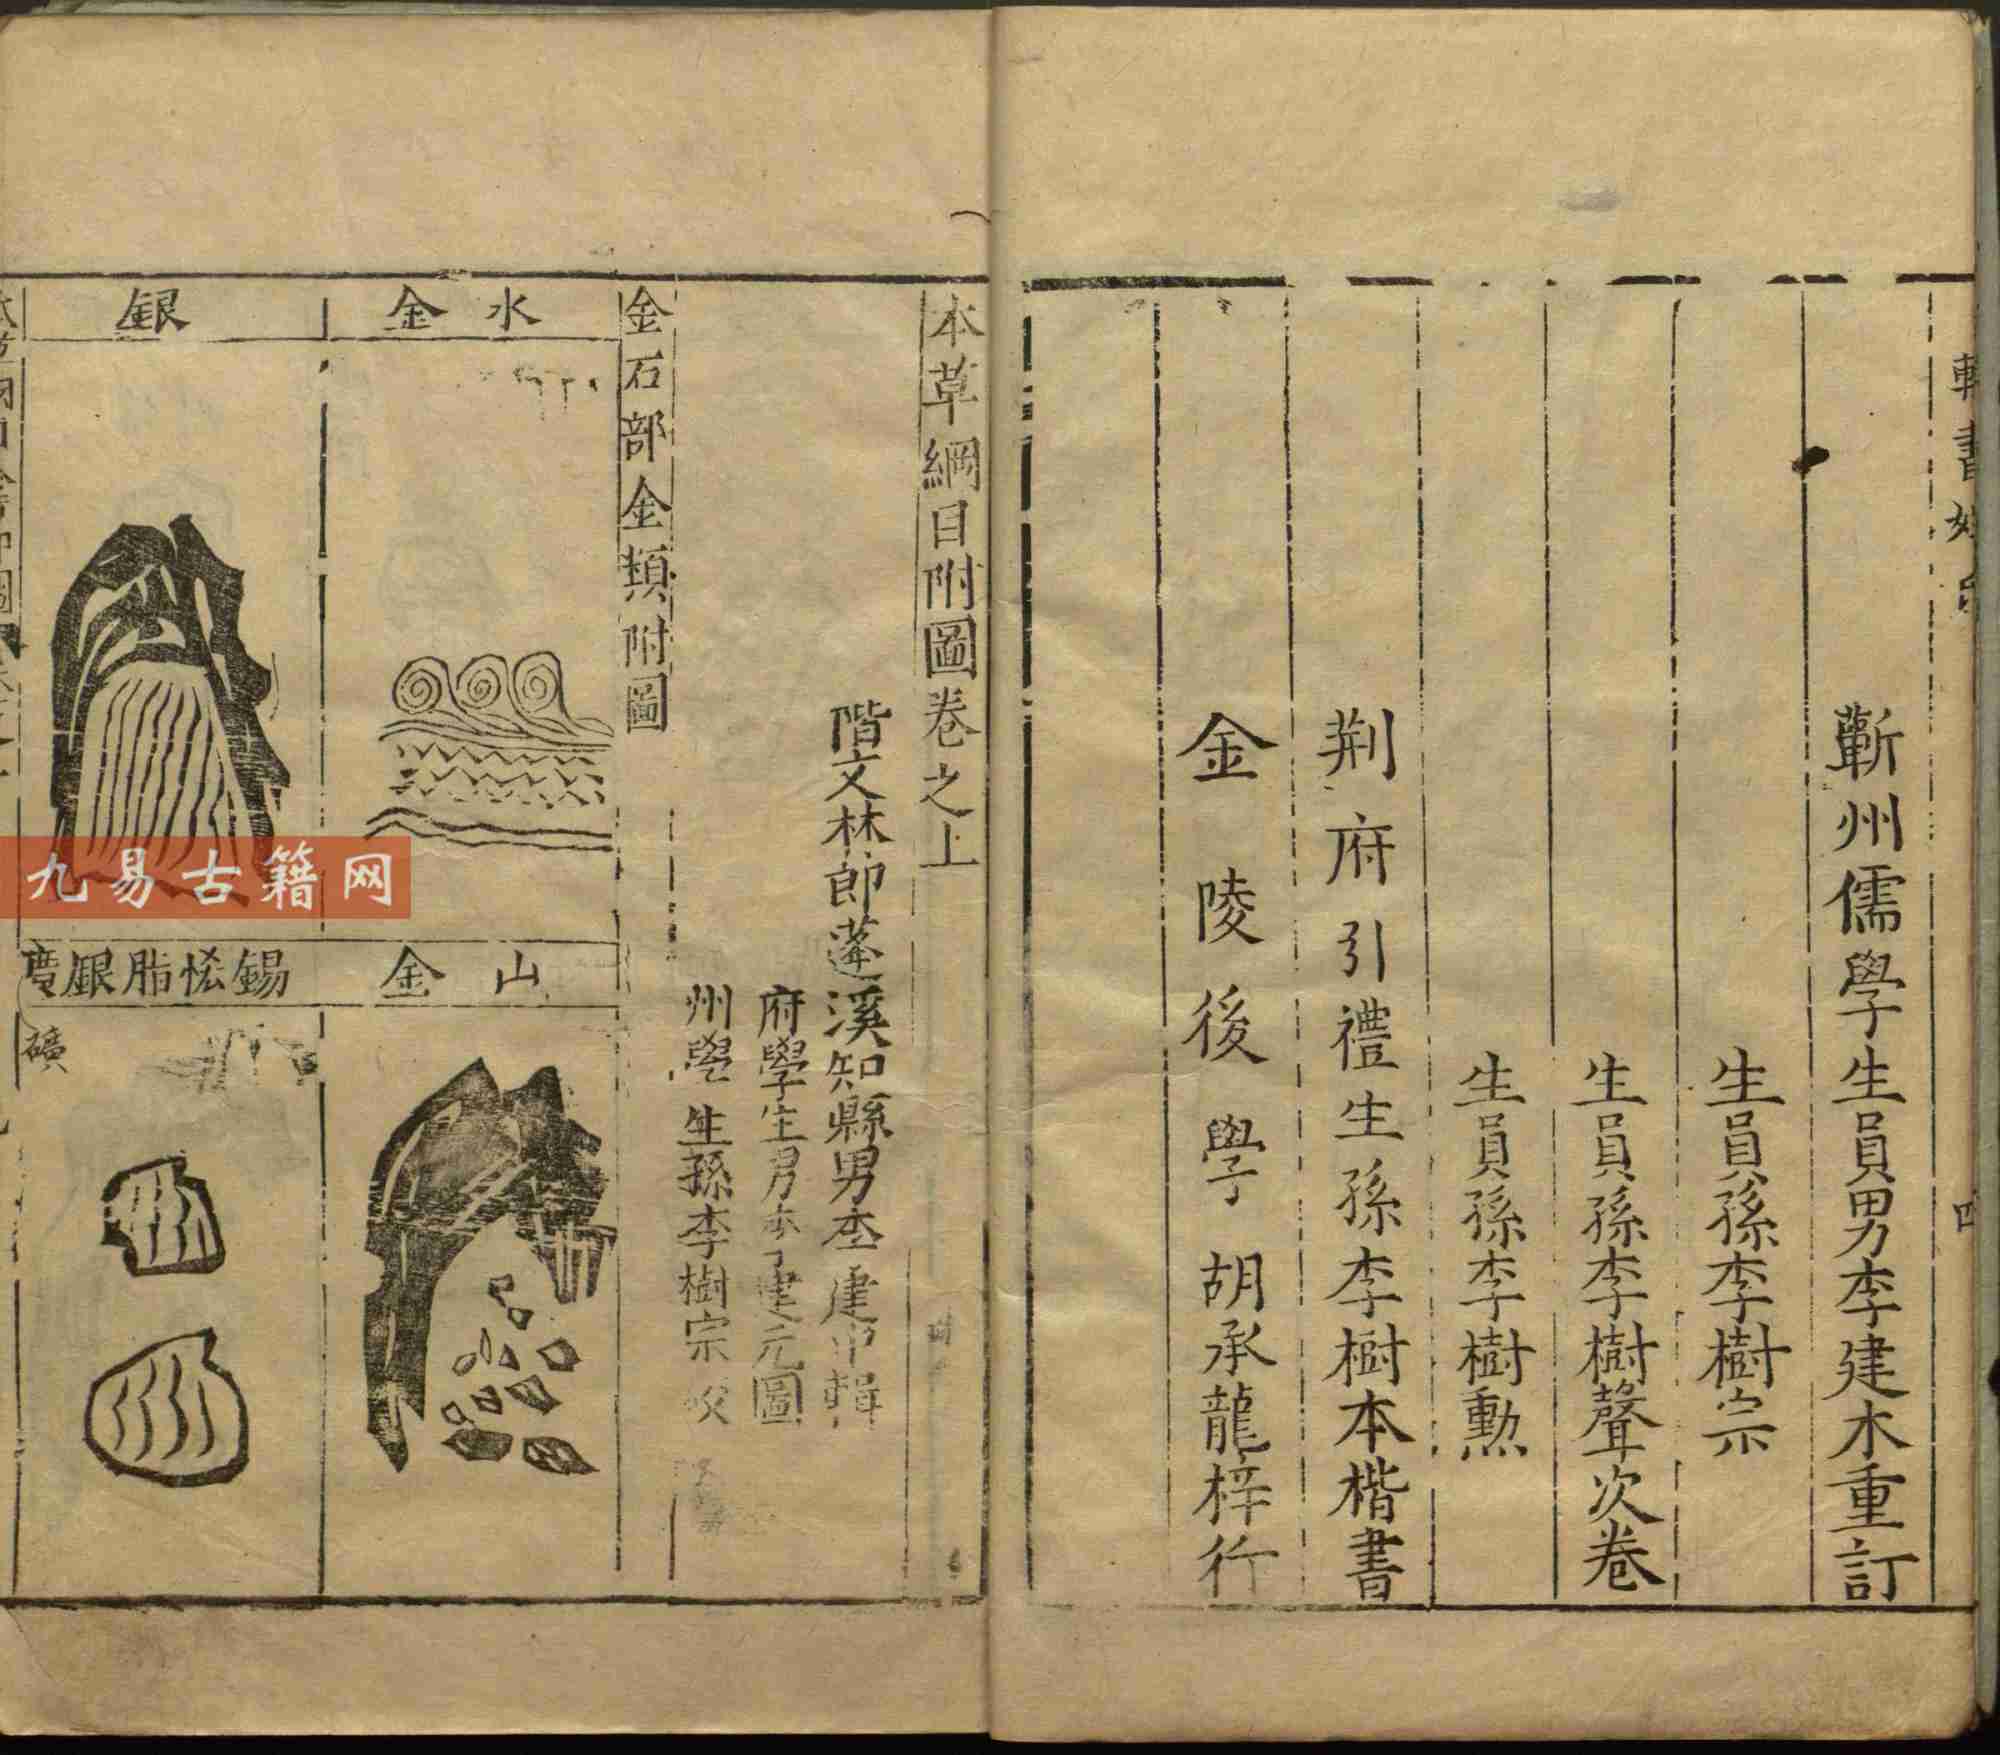 輯書姓氏
四
蘄州儒學生員男李建木重訂
生員孫李樹宗
生員孫李樹聲次卷
生員孫李樹勳
荆府引禮生孫李樹本楷書
金陵後學胡承龍梓行
本草綱目附圖卷之上
階文林郎蓬溪知縣男李建中輯
府學生男李建元圖
州學生孫李樹宗校
金石部金類附圖
水金
山金
銀
錫恡脂銀礦
礦
九易古籍网